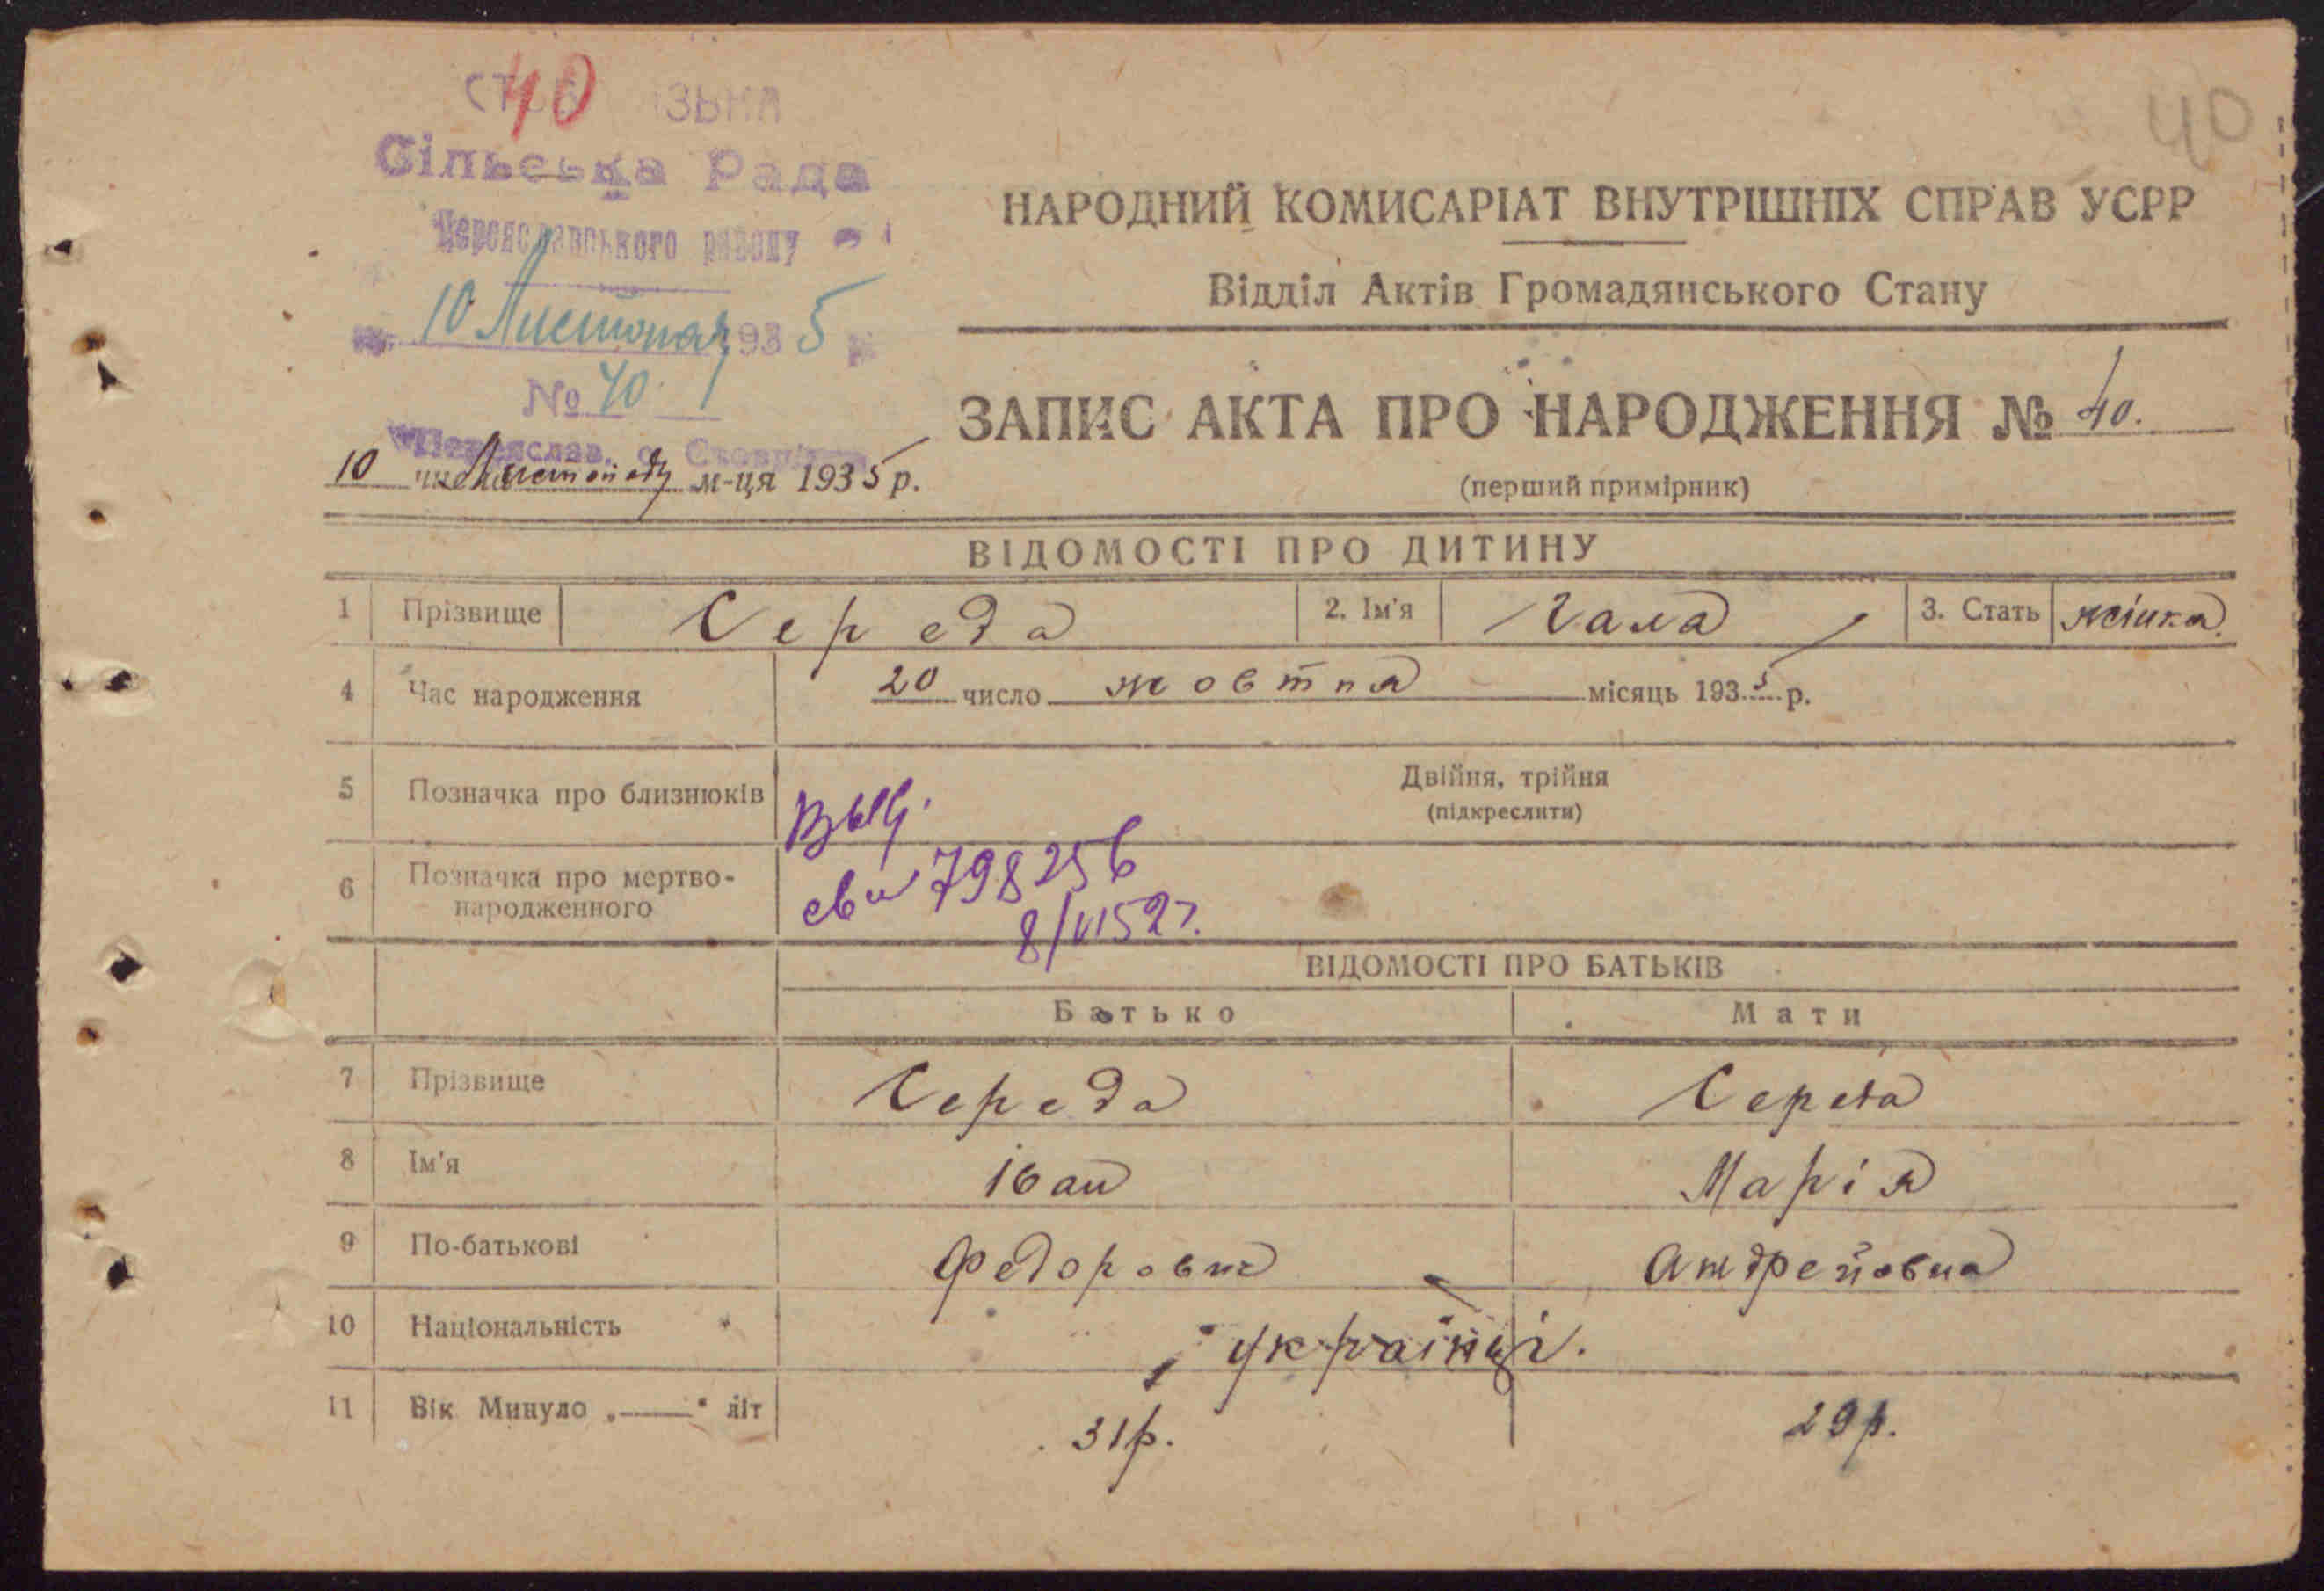 40
40
Сільська Рада
Переяславського району
10 Листопад 1935 р
№ 40
НАРОДНИЙ КОМИСАРІАТ ВНУТРІШНІХ СПРАВ УСРР
Відділ Актів Громадянського Стану
ЗАПИС АКТА ПРО НАРОДЖЕННЯ № 40.
(перший примірник)
10 числа Листопаду м-ця 1935 р.
ВІДОМОСТІ ПРО ДИТИНУ
1 Прізвище Середа 2. Ім'я Гала 3. Стать жінка
4 Час народження 20 число жовтня місяць 1935 р.
5 Позначка про близнюків Двійня, трійня
(підкреслити)
6 Позначка про мертво-
народженного
798256
8/VI 52г.
ВІДОМОСТІ ПРО БАТЬКІВ
Батько Мати
7 Прізвище Середа Середа
8 Ім'я Іван Марія
9 По-батькові Федорович Андрейовна
10 Національність українці.
11 Вік Минуло „—" літ 31р. 29р.